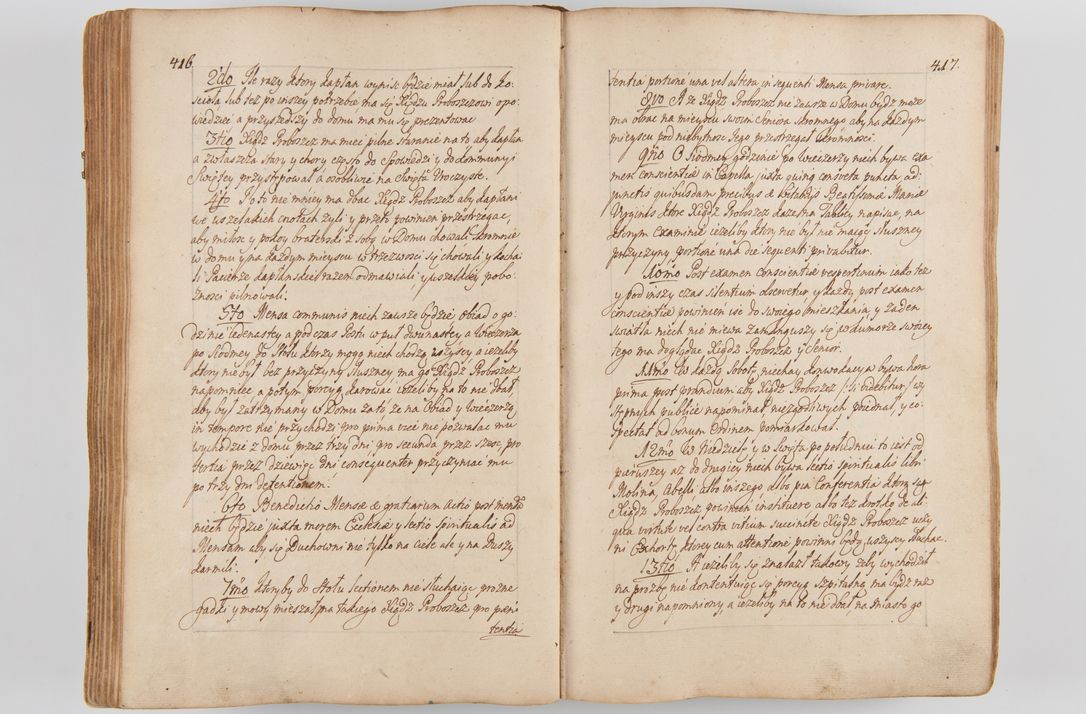 416.
2do Ile razy ktory kapłan wyniść będzie miał lub do Ko-
scioła lub też po inszey potrzebie ma się Xiędzu Proboszczowi opo-
wiedzieć a przyszedszy do domu ma mu się prezentować
3tio Xiądz Proboszcz ma mieć pilne staranie na to aby kapłani
a zwłaszcza stary y chory często do Spowiedzi y do kommunyi
Swiętey przystępował a osobliwie na Swięta Uroczyste.
4to Po to nie mniey ma dbać Xiądz Proboszcz aby kapłani
we wszelakich cnotach żyli y przeto powinien przestrzegać,
aby miłość y pokoy braterski z sobą w Domu chowali skromnie
w domu y na każdym mieyscu w trzezwości się chowali y kocha-
li Pacierze kapłanskie razem odmawiali, y wszelkiey pobo-
żności pilnowali.
5to Mensa communis niech zawsze będzie Obiad o go-
dzinie iedenastey a podczas Postu w puł dwunastey a Wieczerza
po Siodmey do Stołu ktorzy mogą niech chodzą wszyscy a ieżeliby
ktory nie był bez przyczyny słuszney ma go Xiądz Proboszcz
napomnieć a potym porcyą darować ieżeliby na to nie dbał,
aby był zatrzymany w Domu za to, że na Obiad y wieczerzę
in tempore nie przychodzi pro prima vice nie pozwalać mu
wychodzić z domu przez trzy dni pro secunda przez szesc, pro
tertia przez dziewięć dni consequenter przyczyniać mu
po trzy dni detentionem.
6to Benedictio Mensæ & gratiarum Actio post mensam
niech będzie juxta morem Ecclesiæ y lectio spiritualis ad
Mensam aby się Duchowni nie tylko na ciele ale y na Duszy
karmili.
7mo Ktoryby do Stołu Lectionem nie słuchaiąc prozne
gadki y mowy mieszał ma takiego Xiądz Proboszcz pro pæni-
tentia
417.
tentia portione una vel altera in sequenti Mensa privare.
8vo A że Xiądz Proboszcz nie zawsze w Domu bydz może
ma obrać na mieyscu swoim Seniora skromnego aby na każdym
mieyscu pod niebytność Jego przestrzegał skromności.
9no O Siodmey godzinie po wieczerzy niech bywa exa-
men conscientiæ in Capella juxta quinq consveta puncta ad-
junctis quibusdam precibus & Litaniis Beatissimæ Mariæ
Virginis ktore Xiądz Proboszcz każe na Tablicy napisać, na
ktorym Examinie ieżeliby ktory nie był nie maiąc słuszney
przyczyny portione una die sequenti privabitur.
10mo Post examen conscientiæ vespertinum iako też
y pod inszy czas silentium observetur, y każdy post examen
conscientiæ powinien iść do swoiego mieszkania, y żaden
światła niech nie miewa zamknąwszy się w komorze swoiey
tego ma doglądać Xiądz Proboszcz y Senior.
11mo W każdą Sobotę niechay konwokacya bywa hora
prima post prandium aby Xiądz Proboszcz /:si videbitur:/ wy-
stępnych publicé napominał, niezgodliwych poiednał, y co
spectat ad bonum Ordinem pomiarkował.
12mo W Niedzielę y w Swięta po południu to iest od
pierwszey aż do drugiey niech bywa lectio spiritualis libri
Molina, Abelli albo inszego albo pia Conferentia ktorą sam
Xiądz Proboszcz powinien instituere albo też krotko de ali-
qua virtute vel contra vitium succincte Xiądz Proboszcz uczy-
ni Exhortę ktorey cum attentione powinni będą wszyscy słuchać.
13tio A ieżeliby się znalazł takowy żeby wychodził
na prozby nie kontentuiąc się porcyą szpitalną ma bydz raz
y drugi napomniony a ieżeliby na to nie dbał na miasto go